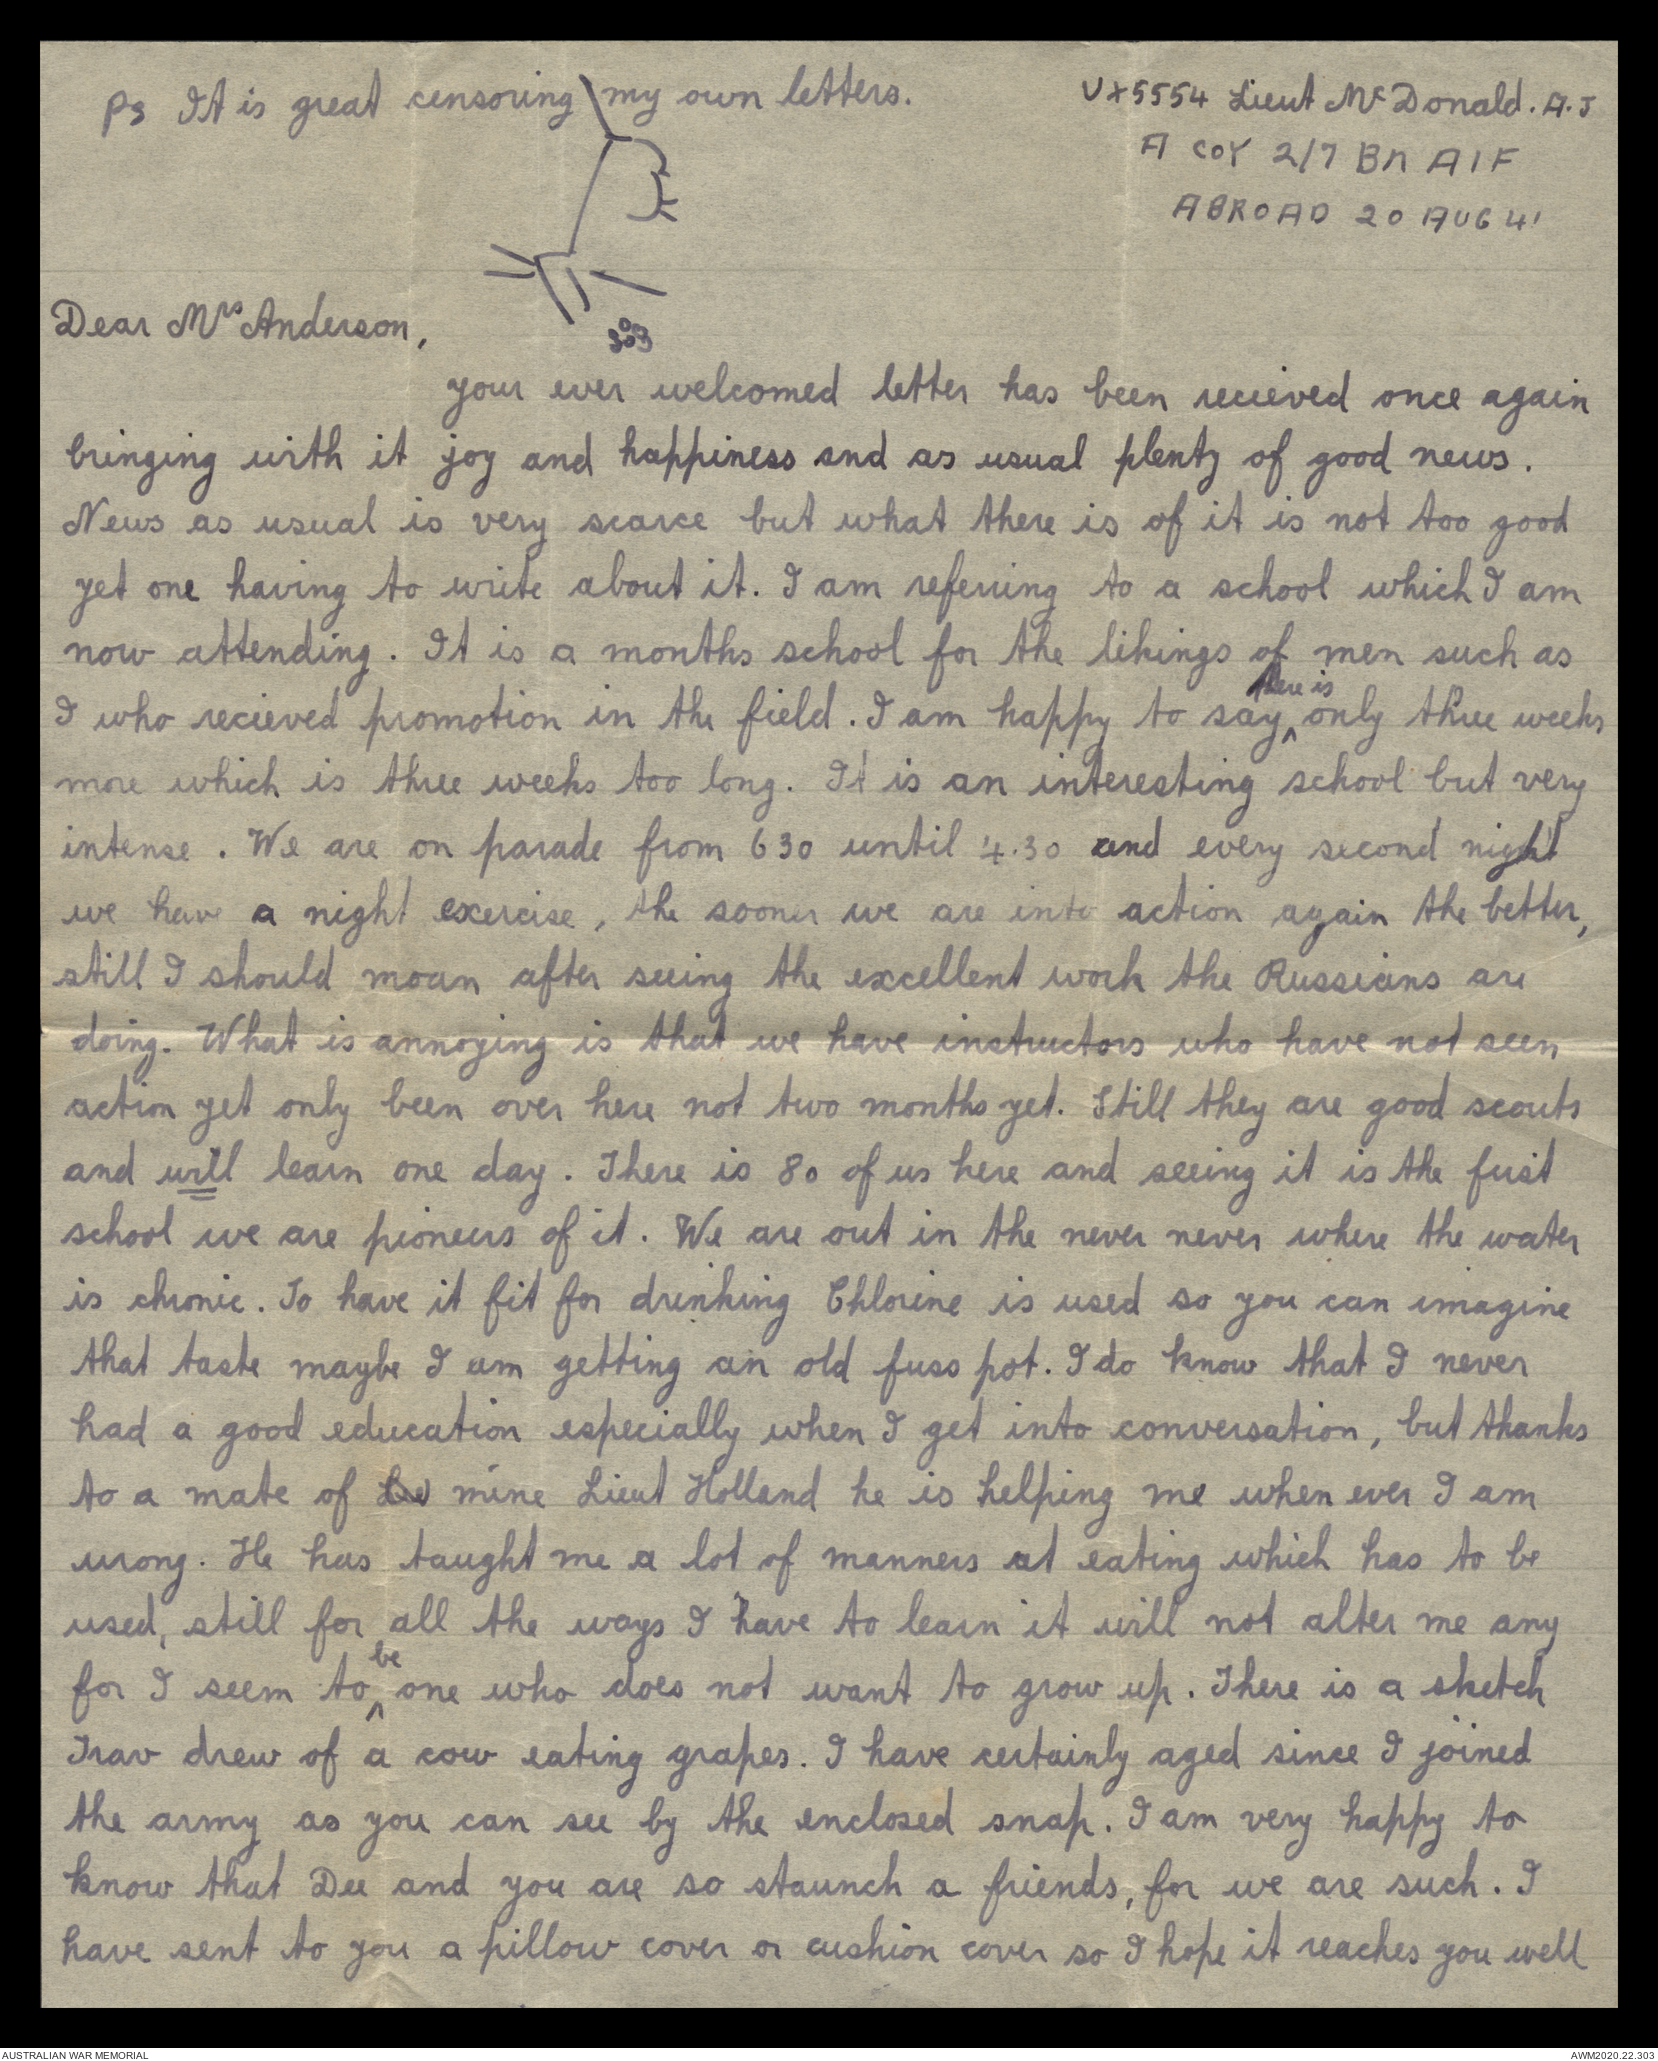 Ps It is great censoring my own letters.
VX5554 Lieut McDonald. A.J
A COY 2/7 BN AIF
ABROAD 20 AUG 41
Dear Mrs Anderson,
your ever welcomed letter has been recieved once again
bringing with it joy and happiness and as usual plenty of good news.
News as usual is very scarce but what there is of it is not too good
yet one having to write about it. I am refering to a school which I am
now attending. It is a months school for the likings of men such as
I who recieved promotion in the field. I am happy to say there is only three weeks
more which is three weeks too long. It is an interesting school but very
intense. We are on parade from 630 until 4.30 and every second night
we have a night exercise, the sooner we are into action again the better,
still I should moan after seeing the excellent work the Russians are
doing. What is annoying is that we have instructors who have not seen
action yet only been over here not two months yet. Still they are good scouts
and will learn one day. There is 80 of us here and seeing it is the first
school we are pioneers of it. We are out in the never never where the water
is chronic. To have it fit for drinking Chlorine is used so you can imagine
that taste maybe I am getting an old fuss pot. I do know that I never
had a good education especially when I get into conversation, but thanks
to a mate of mine Lieut Holland he is helping me when ever I am
wrong. He has taught me a lot of manners at eating which has to be
used, still for all the ways I have to learn it will not alter me any
for I seem to be one who does not want to grow up. There is a sketch
Trav drew of a cow eating grapes. I have certainly aged since I joined
the army as you can see by the enclosed snap. I am very happy to
know that Dee and you are so staunch a friends, for we are such. I
have sent to you a pillow cover or cushion cover so I hope it reaches you well
AUSTRALIAN WAR MEMORIAL
AWM2020.22.303